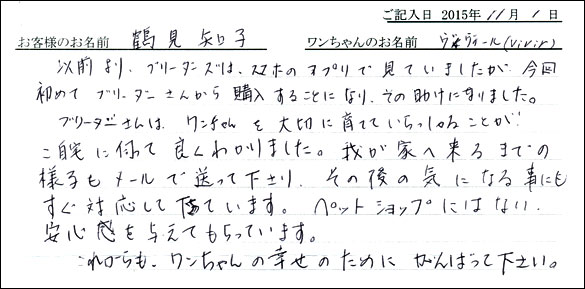 ご記入日 2015年 11月 1日
お客様のお名前 鶴見 知子 ワンちゃんのお名前 ヴィヴィール(vivir)
以前より、ブリーダーズは、スマホのアプリで見ていましたが、今回
初めて ブリーダーさんから 購入することになり、その助けになりました。
ブリーダーさんは、ワンチャンを大切に育てていらっしゃることが、
ご自宅に伺って良くわかりました。我が家へ来るまでの
様子もメールで送って下さり、その後の気になる事にも
すぐ対応して下さっています。ペットショップにはない、
安心感を与えてもらっています。
これからも、ワンちゃんの幸せのために がんばって下さい。